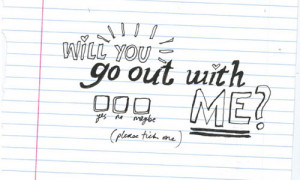 WILL YOU
go out with
ME?
yes no maybe
(please tick one)